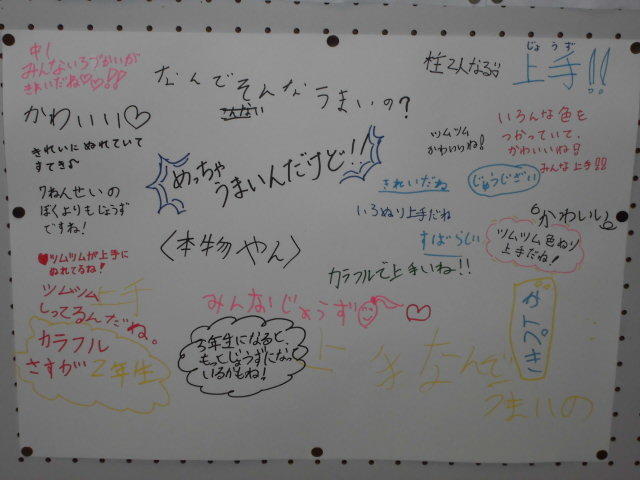 中1
みんないろづかいが
きれいだね♡♡!!
なんでそんな
こんない
うまいの?
じょうず
上手!!
かわいい♡
きれいにぬれていて
すてき♪
めっちゃ
うまいんだけど!!
ツムツム
かわいいね!
いろんな色を
つかっていて、
かわいいね!!
みんな上手!!
7ねんせいの
ぼくよりもじょうず
ですね!
きれいだね
じゅうじざい
いろぬり上手だね
すばらしい
かわいい
ツムツム色ぬり
上手だね!
〈本物やん〉
カラフルで上手いね!!
♥ツムツムが上手に
ぬれてるね!
ツムツム
しってるんだね。
上手
みんなじょうず
♡
カラフル
さすが2年生
3年生になると、
もっとじょうずになって
いるかもね!
上手なんで
うまいの